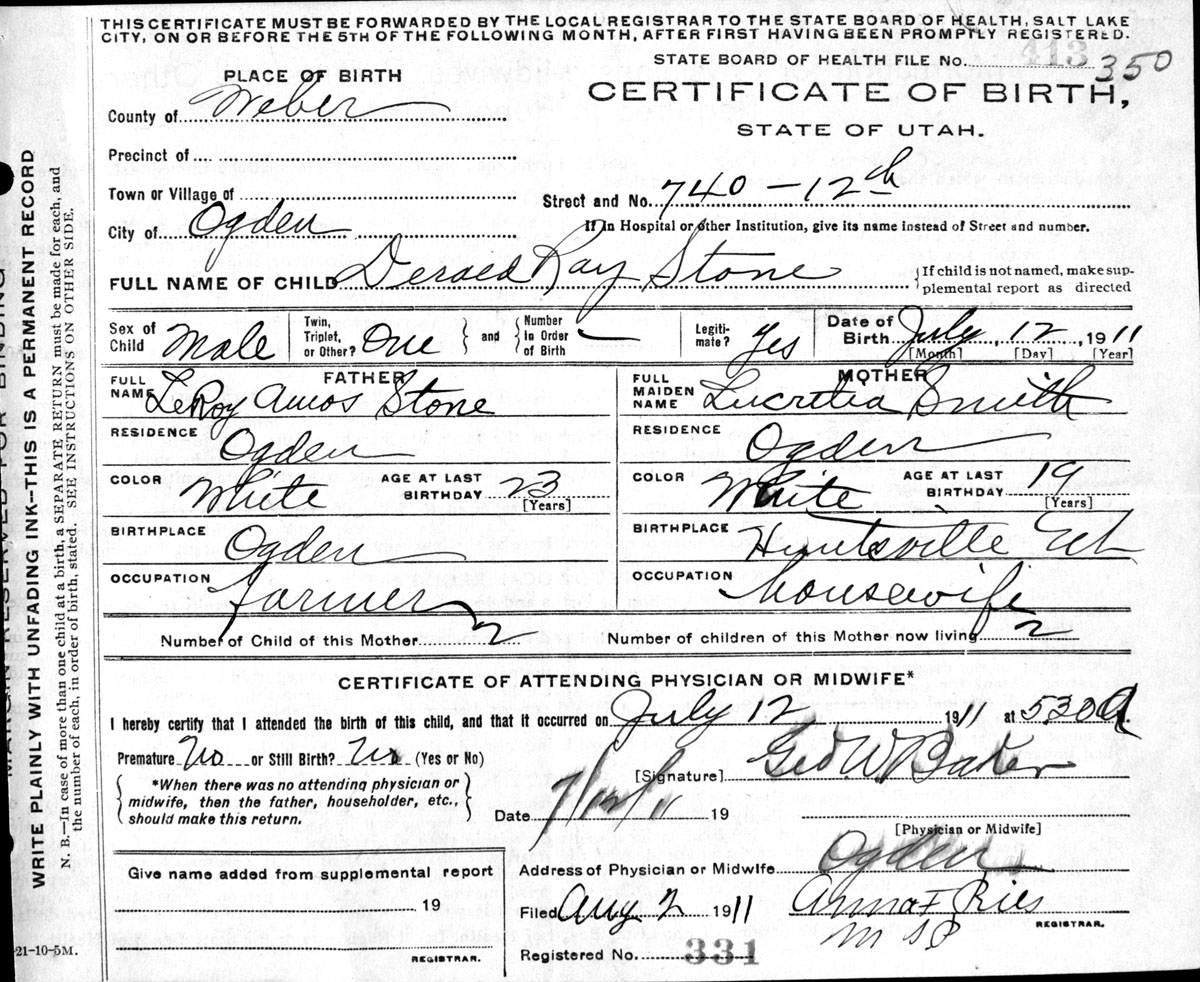 THIS CERTIFICATE MUST BE FORWARDED BY THE LOCAL REGISTRAR TO THE STATE BOARD OF HEALTH, SALT LAKE
CITY, ON OR BEFORE THE 5TH OF THE FOLLOWING MONTH, AFTER FIRST HAVING BEEN PROMPTLY REGISTERED.
STATE BOARD OF HEALTH FILE No. 413 350
PLACE OF BIRTH
CERTIFICATE OF BIRTH,
STATE OF UTAH.
County of Weber
Precinct of
Town or Village of
Street and No. 740 - 12th
City of Ogden
If in Hospital or other Institution, give its name instead of Street and number.
FULL NAME OF CHILD Ray Stone
{If child is not named, make sup-
plemental report as directed
Sex of Child Male
Twin, Triplet, or Other? One
and
Number in Order of Birth
Legiti-mate? Yes
Date of Birth July 12, 1911
[Month] [Day] [Year]
FATHER
FULL NAME LeRoy Amos Stone
RESIDENCE Ogden
COLOR White
AGE AT LAST BIRTHDAY 23
[Years]
BIRTHPLACE Ogden
OCCUPATION Farmer
MOTHER
FULL MAIDEN NAME Lucretia Smith
RESIDENCE Ogden
COLOR White
AGE AT LAST BIRTHDAY 19
[Years]
BIRTHPLACE Huntsville Ut
OCCUPATION housewife
Number of Child of this Mother 2
Number of children of this Mother now living 2
CERTIFICATE OF ATTENDING PHYSICIAN OR MIDWIFE*
I hereby certify that I attended the birth of this child, and that it occurred on July 12 1911 at 530 A.
Premature No or Still Birth? No (Yes or No)
*When there was no attending physician or
midwife, then the father, householder, etc.,
should make this return.
[Signature] Geo W Baker
Date 7/12/11 19
[Physician or Midwife]
Address of Physician or Midwife Ogden
Give name added from supplemental report
19
REGISTRAR.
Filed Aug 2 1911
Anna F Ries
REGISTRAR.
Registered No. 331
21-10-5M.
MARGIN RESERVED FOR BINDING
WRITE PLAINLY WITH UNFADING INK--THIS IS A PERMANENT RECORD
N. B.—In case of more than one child at a birth, a SEPARATE RETURN must be made for each, and
the number of each, in order of birth, stated. SEE INSTRUCTIONS ON OTHER SIDE.